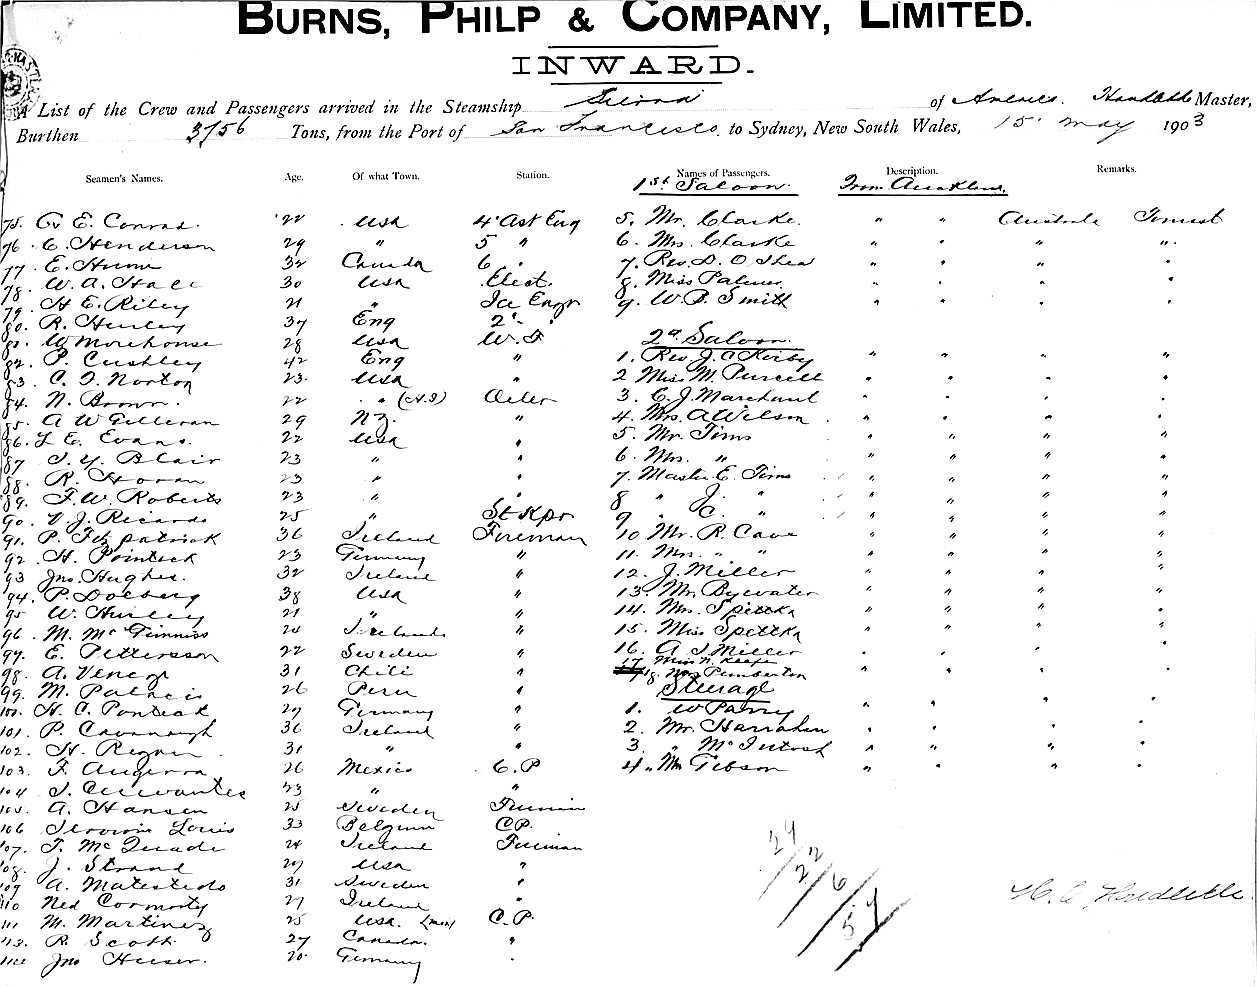 BURNS, PHILP & COMPANY, LIMITED.
INWARD.
A List of the Crew and Passengers arrived in the Steamship Sierra of America. Master,
Burthen 3756 Tons, from the Port of San Francisco to Sydney, New South Wales, 15 May 1903
Seamen's Names. Age. Of what Town. Station. Names of Passengers. Description. Remarks.
1st Saloon. From Auckland.
75. E. Conrad. 22 USA 4 Ast Eng 5. Mr. Clarke. " " Tourist
76. C. Henderson 29 " 5 " 6. Mrs. Clarke " " " "
77. E. Hume 32 Canada 6 " 7. Rev. D. O'Shea " " " "
78. W. A. Hall 30 USA Elect. 8. Miss Palmer " " " "
79. H. E. Riley 21 " Ice Engr 9. W. B. Smith " " " "
80. R. Hurley 37 Eng 2 "
81. W Morehouse 28 USA W. T 2d Saloon.
82. P. Cushley 42 Eng " 1. Rev. J. C Kirby " " " "
83. C. T. Norton 23. USA " 2 Miss M. Purcell " " " "
84. N. Brown. 22 " Oiler 3. C. J. Marchant " " " "
85. A W Gilleran 29 NZ. " 4. Mrs. A Wilson " " " "
86. L E. Evans. 22 USA " 5. Mr. Tims " " " "
87 J. Y. Blair 23 " " 6. Mrs. " " " " "
88. R. Horan 23 " " 7. Master E. Tims " " " "
89. F. W. Roberts 23 " " 8 " J. " " " " "
90. V. J. Ricards 25 " St Kpr 9 " C. " " " " "
91. P. Fitzpatrick 36 Ireland Fireman 10 Mr. R. Cave " " " "
92. H. Pointeck 23 Germany " 11. Mrs. " " " " " "
93 Jno. Hughes. 32 Ireland " 12. J. Miller " " " "
94. P. Dolberg 38 USA " 13. Mr Bywater " " " "
95 W. Hurley 21 " " 14. Mrs. Spittka " " " "
96. M. McGinniss Ireland " 15. Miss Spittka " " " "
97. E. Pettersson 22 Sweden " 16. A J Miller " " " "
98. A. Venegz 31 Chili " 17 Miss N. Keefe
18. Mrs Pemberton " " " "
99. M. Palacis 26 Peru " Steerage
100. H. C. Ponteak 27 Germany " 1. W Parry " " " "
101. P. Cavanagh 36 Ireland " 2. Mr. Harrahan " " " "
102. H. Regan 31 " " 3. " McIntosh " " " "
103. F. 26 Mexico C. P 4. Mr Gibson " " " "
104 J. Cervantes 23 " "
105. A. Hansen 25 Sweden Fireman
106 Louis 33 Belgium CP.
107. T. McQuade 24 Ireland Fireman
108. J. Strand 27 USA "
109 A. 31 Sweden "
110 Ned Cormorty 27 Ireland "
111 M. Martinez 25 USA. (Mex) C. P.
R. Scott. 27 Canada. "
Jno Heiser. 20. Germany "
27/22/6/57